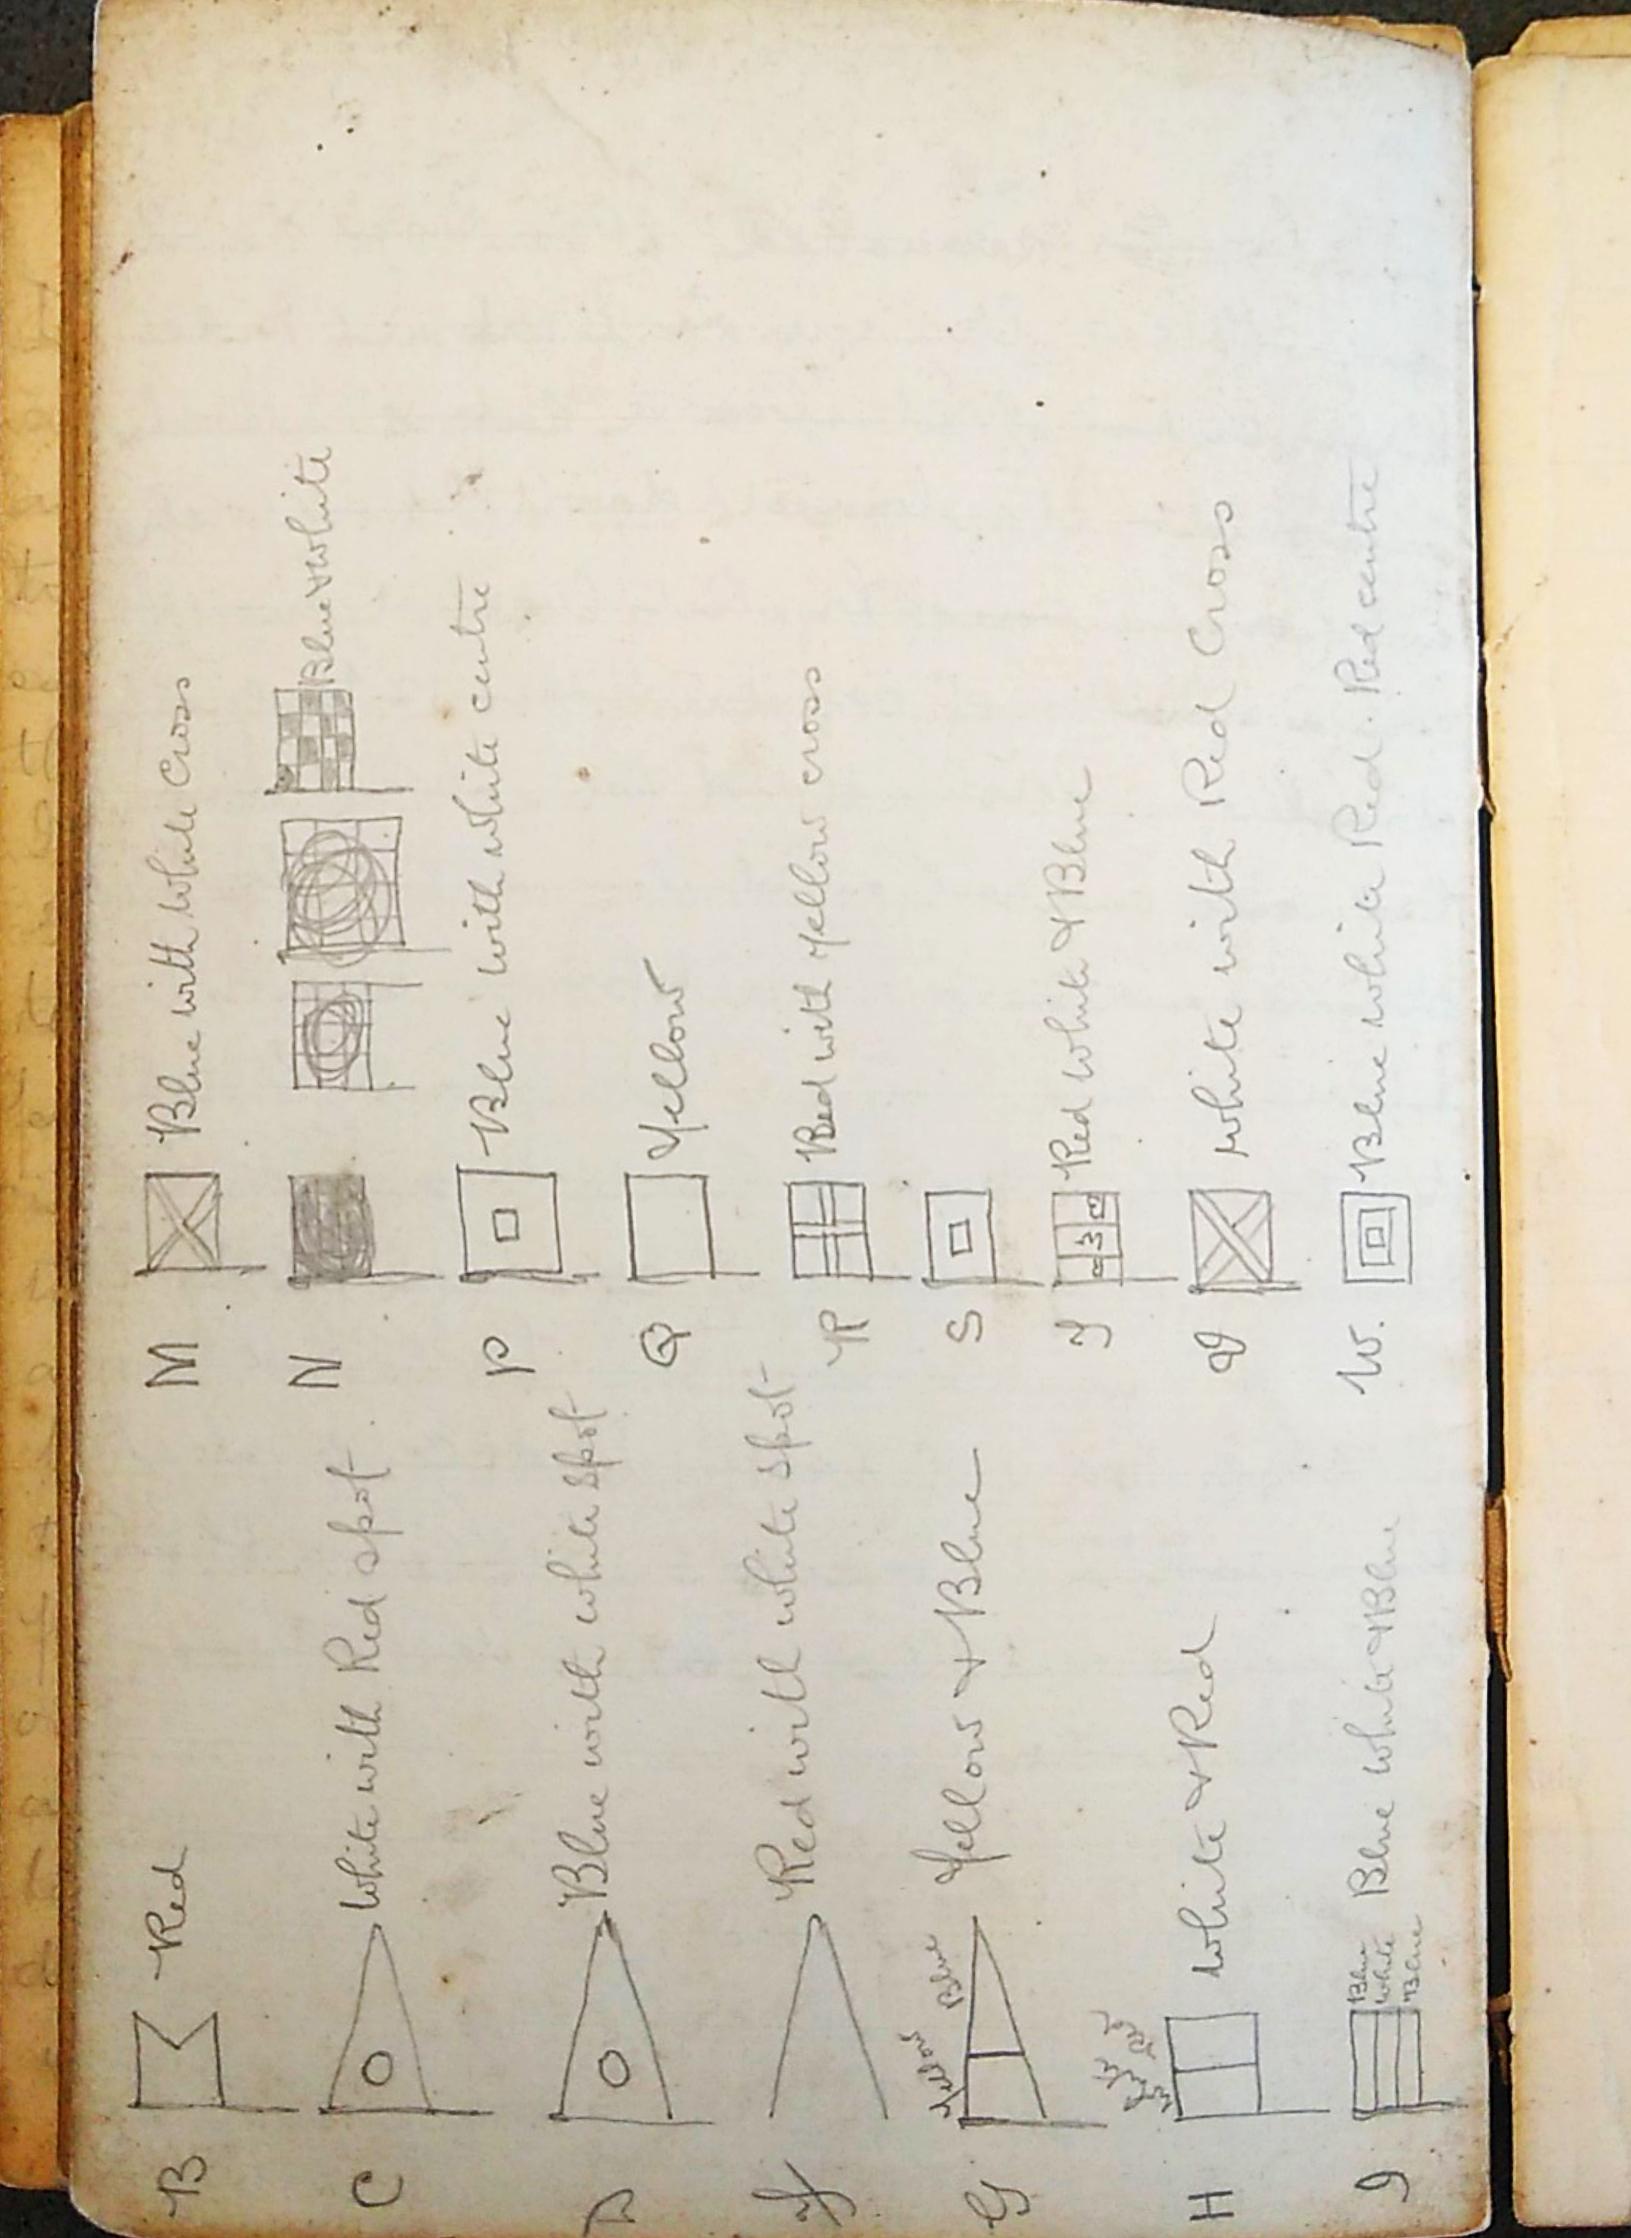 B Red
C White with Red spot
D Blue with white spot
F Red with white spot
G Yellow Blue Yellow & Blue
H White & Red
I Blue White Blue Blue White & Blue
M Blue with White Cross
N Blue & White
P Blue with white centre
Q Yellow
R Red with Yellow cross
S
T Red White & Blue
V White with Red Cross
W. Blue White Red. Red centre